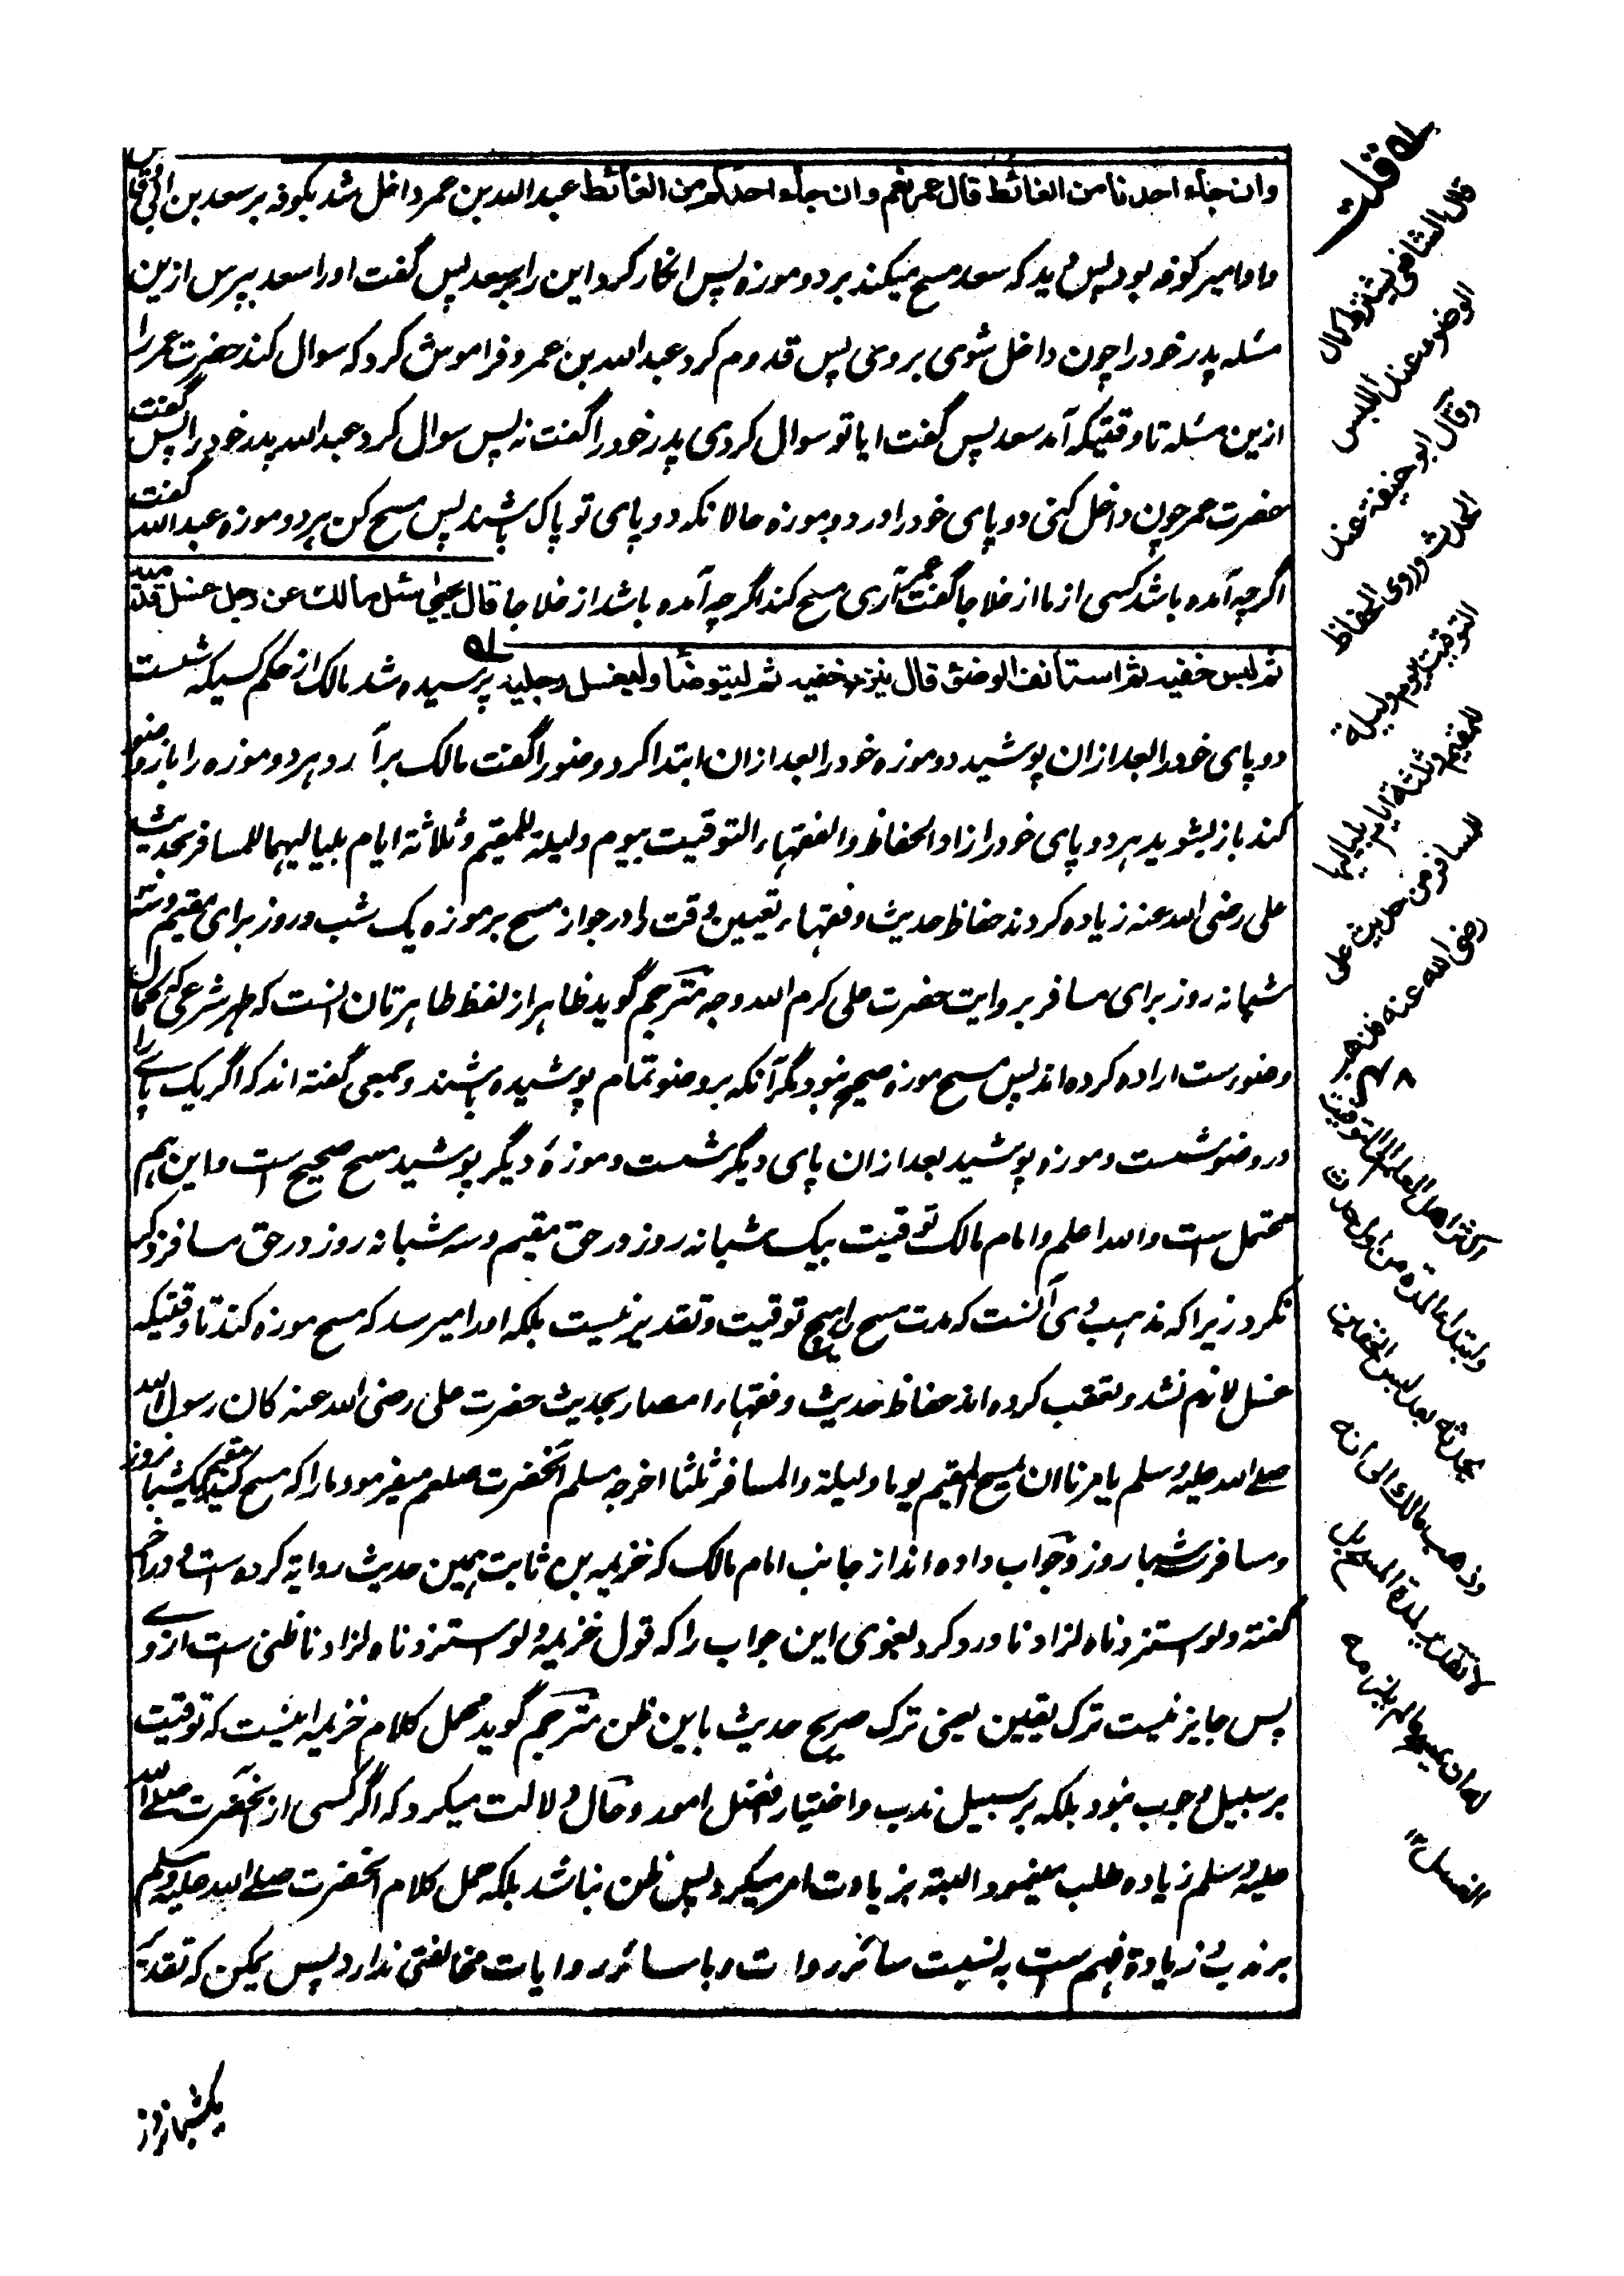 وان جاء احدنا من الغائط قال عمر نعم وان جاء احدكم من الغائط عبد الله بن عمر داخل شد بكوفه بر سعد بن ابی وقاص
و او امیر کوفه بود پس دید که سعد مسح میکند بر دو موزه پس انکار کرد این را بر سعد پس گفت او را سعد بپرس ازین
مسئله پدر خود را چون داخل شوی بر وی پس قدوم کرد عبد الله بن عمر و فراموش کرد که سوال کند حضرت عمر را
ازین مسئله تا وقتیکه آمد سعد پس گفت ایا تو سوال کردی پدر خود را گفت نه پس سوال کرد عبد الله پدر خود را پس گفت
حضرت عمر چون داخل کنی دو پای خود را در دو موزه حالانکه دو پای تو پاک باشند پس مسح کن بر دو موزه عبد الله گفت
اگرچه آمده باشد کسی از ما از خلا جا گفت عمر آری مسح کند اگرچه آمده باشد از خلا جا قال یحیی سئل مالك عن رجل غسل قدمیه
ثم لبس خفیه ثم استأنف الوضوء قال ینزع خفیه ثم لیتوضأ ولیغسل رجلیه پرسیده شد مالک از حکم کسیکه شست
دو پای خود را بعد ازان پوشید دو موزه خود را بعد ازان ابتدا کرد وضو را گفت مالک برآرد هر دو موزه را باز وضو
کند باز بشوید هر دو پای خود را زاد الحفاظ والفقهاء التوقیت بیوم ولیلة للمقیم وثلاثة ایام بلیالیهما للمسافر بحدیث
علی رضی الله عنه زیاده کردند حفاظ حدیث و فقهاء تعیین وقت را در جواز مسح بر موزه یک شب و روز برای مقیم و سه
شبانه روز برای مسافر بروایت حضرت علی کرم الله وجهه مترجم گوید ظاهر از لفظ طاهرتان انست که طهر شرعی که کمال
وضوست اراده کرده اند پس مسح موزه صحیح نبود مگر آنکه بر وضو تمام پوشیده باشند و جمعی گفته اند که اگر یک پای را
در وضو شست و موزه پوشید بعد ازان پای دیگر شست و موزهٔ دیگر پوشید مسح صحیح است و این هم
محتمل است والله اعلم و امام مالک توقیت بیک شبانه روز در حق مقیم و سه شبانه روز در حق مسافر ذکر
نکرد زیرا که مذهب وی آنست که مدت مسح را هیچ توقیت و تقدیر نیست بلکه او را میرسد که مسح موزه کند تا وقتیکه
غسل لازم نشد و تعقب کرده اند حفاظ حدیث و فقهاء امصار بحدیث حضرت علی رضی الله عنه کان رسول الله
صلے الله علیه وسلم یامرنا ان یمسح المقیم یوما ولیلة والمسافر ثلثا اخرجه مسلم آنحضرت صلعم میفرمود ما را که مسح کند مقیم یکشبانروز
و مسافر سه شبانروز و جواب داده اند از جانب امام مالک که خزیمه بن ثابت همین حدیث روایة کرده است و در آخر
گفته ولو استزدناه لزادنا و رد کرد بغوی این جواب را که قول خزیمه ولو استزدناه لزادنا ظنی است از وے
پس جایز نیست ترک یقین یعنی ترک صریح حدیث باین ظن مترجم گوید محمل کلام خزیمه اینست که توقیت
بر سبیل وجوب نبود بلکه بر سبیل ندب و اختیار افضل امور و حال دلالت میکرد که اگر کسی از آنحضرت صلے الله
علیه وسلم زیاده طلب مینمود البته بزیادت امر میکرد پس ظن نباشد بلکه حمل کلام آنحضرت صلے الله علیه وسلم
بر ندب و زیادة فهم است به نسبت سائر روات و با سائر روایات مخالفتی ندارد پس یمکن که تقدیر
یکشبانروز
له قلت
قال الشافعی یشترط کمال
الوضوء عند اللبس
وقال ابو حنیفة عند
الحدث وروی الحفاظ
التوقیت بیوم ولیلة
للمقیم وثلثة ایام بلیالیها
للمسافر من حدیث علی
رضی الله عنه فذهب
اکثر اهل العلم الی التوقیت
وابتداء المدة من اول حدث
یحدثه بعد لبس الخفین
وذهب مالك الی انه
لا تقدیر لمدة المسح بل
له ان یمسح ما لم یلزمه
الغسل ١٢